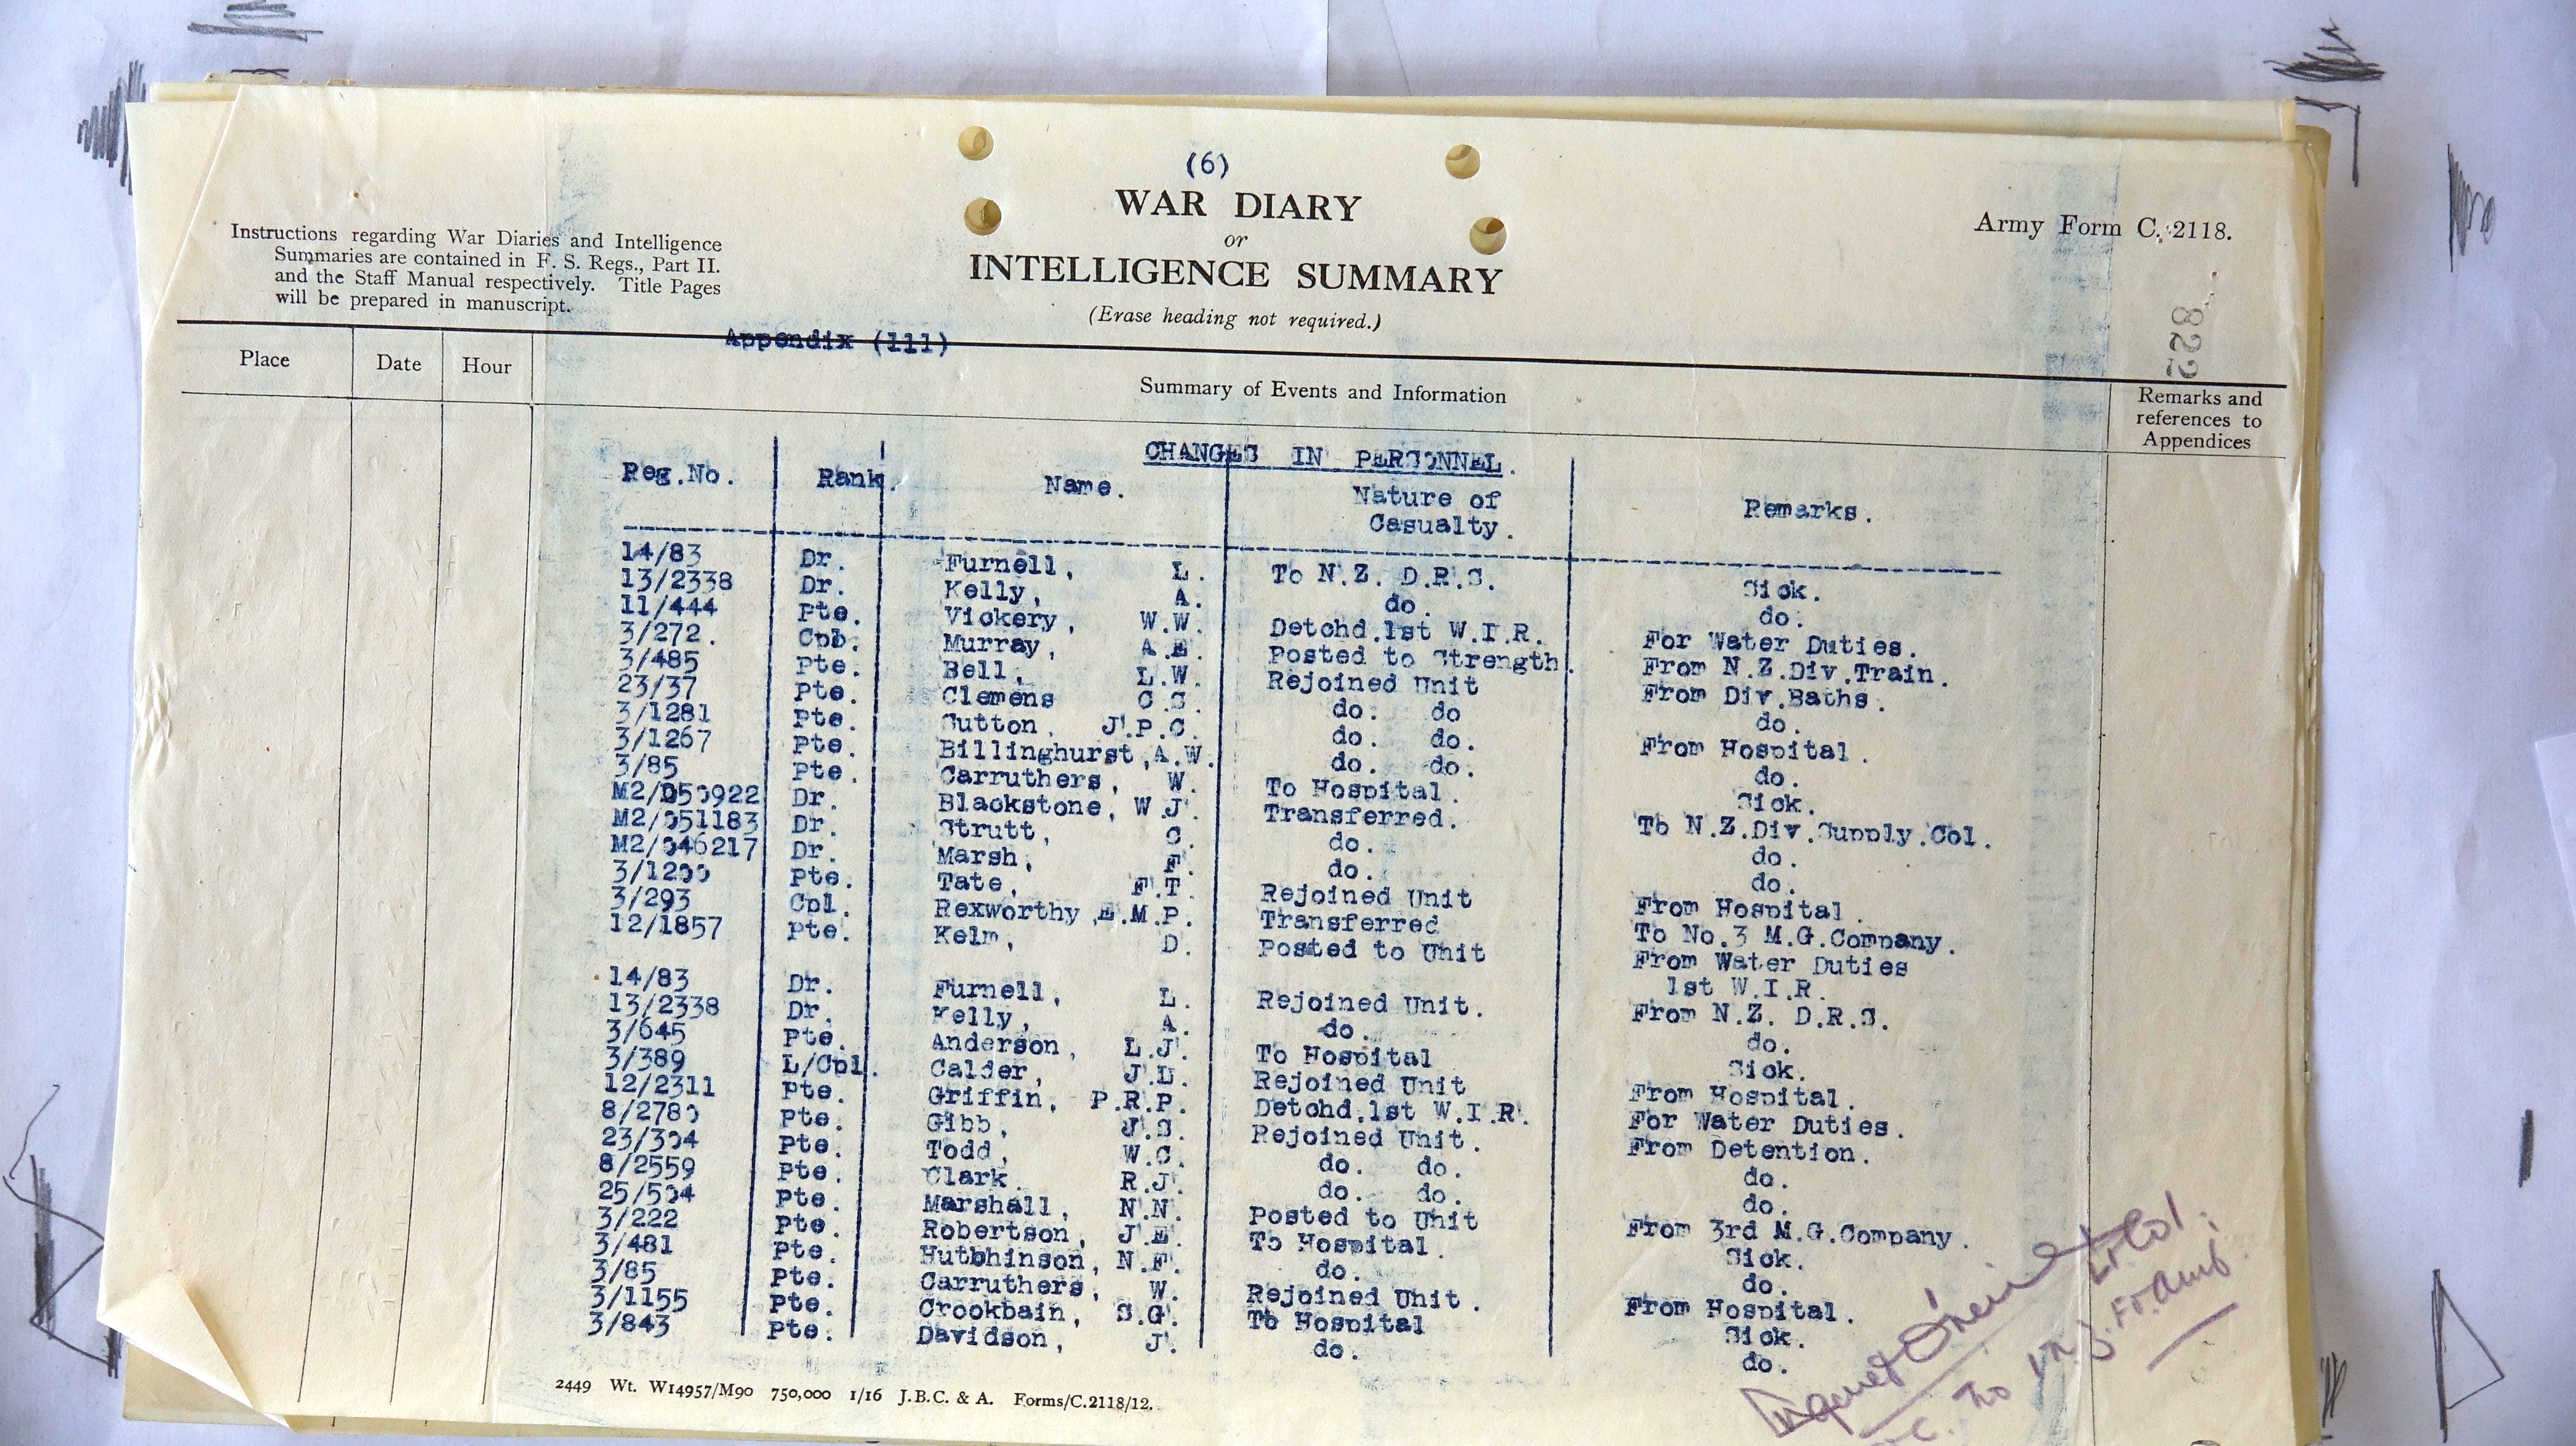 (6)
WAR DIARY
or
INTELLIGENCE SUMMARY
(Erase heading not required.)
Army Form C. 2118.
Instructions regarding War Diaries and Intelligence
Summaries are contained in F. S. Regs., Part II.
and the Staff Manual respectively. Title Pages
will be prepared in manuscript.
822
Appendix (111)
Place Date Hour Summary of Events and Information Remarks and
references to
Appendices
CHANGES IN PERSONNEL.
Reg.No. Rank. Name. Nature of Casualty. Remarks.
14/83 Dr. Furnell, L. To N.Z. D.R.S. Sick.
13/2338 Dr. Kelly, A. do. do.
11/444 Pte. Vickery, W.W. Detchd.1st W.I.R. For Water Duties.
3/272. Cpl. Murray, A.E. Posted to Strength. From N.Z.Div.Train.
3/485 Pte. Bell, L.W. Rejoined Unit From Div.Baths.
23/37 Pte. Clemens C.S. do. do do.
3/1281 Pte. Sutton, J.P.C. do. do. From Hospital.
3/1267 Pte. Billinghurst,A.W. do. do. do.
3/85 Pte. Carruthers, W. To Hospital. Sick.
M2/050922 Dr. Blackstone, W J. Transferred. To N.Z.Div.Supply.Col.
M2/051183 Dr. Strutt, C. do. do.
M2/046217 Dr. Marsh, F. do. do.
3/1200 Pte. Tate, F.T. Rejoined Unit From Hospital.
3/293 Cpl. Rexworthy,E.M.P. Transferred To No.3 M.G.Company.
12/1857 Pte. Kelm, D. Posted to Unit From Water Duties
1st W.I.R.
14/83 Dr. Furnell, L. Rejoined Unit. From N.Z. D.R.S.
13/2338 Dr. Kelly, A. do. do.
3/645 Pte. Anderson, L.J. To Hospital Sick.
3/389 L/Cpl. Calder, J.L. Rejoined Unit From Hospital.
12/2311 Pte. Griffin, P.R.P. Detchd.1st W.I.R. For Water Duties.
8/2780 Pte. Gibb, J.S. Rejoined Unit. From Detention.
23/304 Pte. Todd, W.C. do. do. do.
8/2559 Pte. Clark R.J. do. do. do.
25/504 Pte. Marshall, N.N. Posted to Unit From 3rd M.G.Company.
3/222 Pte. Robertson, J.E. To Hospital. Sick.
3/481 Pte. Hutbhinson, N.F. do. do.
3/85 Pte. Carruthers, W. Rejoined Unit. From Hospital.
3/1155 Pte. Crookbain, S.G. To Hospital Sick.
3/843 Pte. Davidson, J. do. do.
Lt Col.
2449 Wt. W14957/M90 750,000 1/16 J.B.C. & A. Forms/C.2118/12.